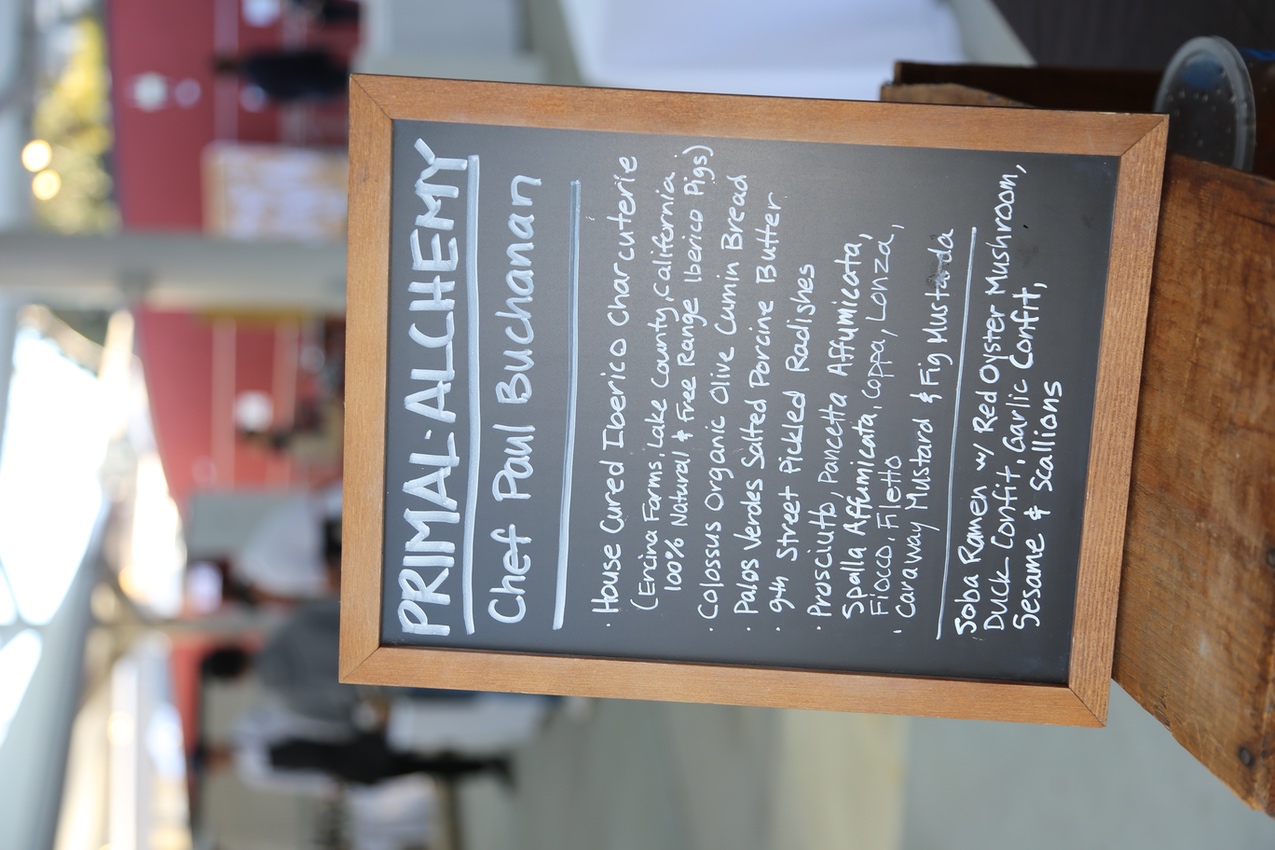 PRIMAL·ALCHEMY
Chef Paul Buchanan
· House Cured Iberico Charcuterie
(Encina Farms, Lake County, California
100% Natural & Free Range Iberico Pigs)
· Colossus Organic Olive Cumin Bread
· Palos Verdes Salted Porcine Butter
· 9th Street Pickled Radishes
· Prosciutto, Pancetta Affumicata,
Spalla Affumicata, Coppa, Lonza,
Fiocco, Filetto
· Caraway Mustard & Fig Mustarda
Soba Ramen w/ Red Oyster Mushroom,
Duck Confit, Garlic Confit,
Sesame & Scallions